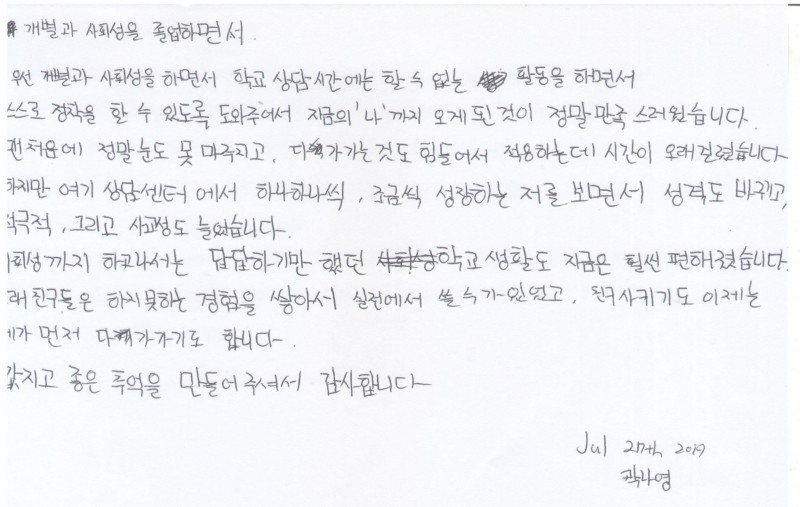 * 개별과 사회성을 졸업하면서.
우선 개별과 사회성을 하면서 학교 상담시간에는 할 수 없는 활동을 하면서
스스로 정착을 할 수 있도록 도와주어서 지금의 '나'까지 오게 된 것이 정말 만족스러웠습니다.
맨처음에 정말 눈도 못 마주치고, 다가가는 것도 힘들어서 적응하는데 시간이 오래걸렸습니다
하지만 여기 상담센터에서 하나하나씩, 조금씩 성장하는 저를 보면서 성격도 바뀌고,
적극적, 그리고 사회성도 늘었습니다.
사회성까지 하고나서는 답답하기만 했던 학교생활도 지금은 훨씬 편해졌습니다.
또래 친구들은 하지못하는 경험을 쌓아서 실전에서 쓸 수가 있었고, 친구사귀기도 이제는
제가 먼저 다가가기도 합니다.
값지고 좋은 추억을 만들어주셔서 감사합니다
Jul 27th 2019
곽나영